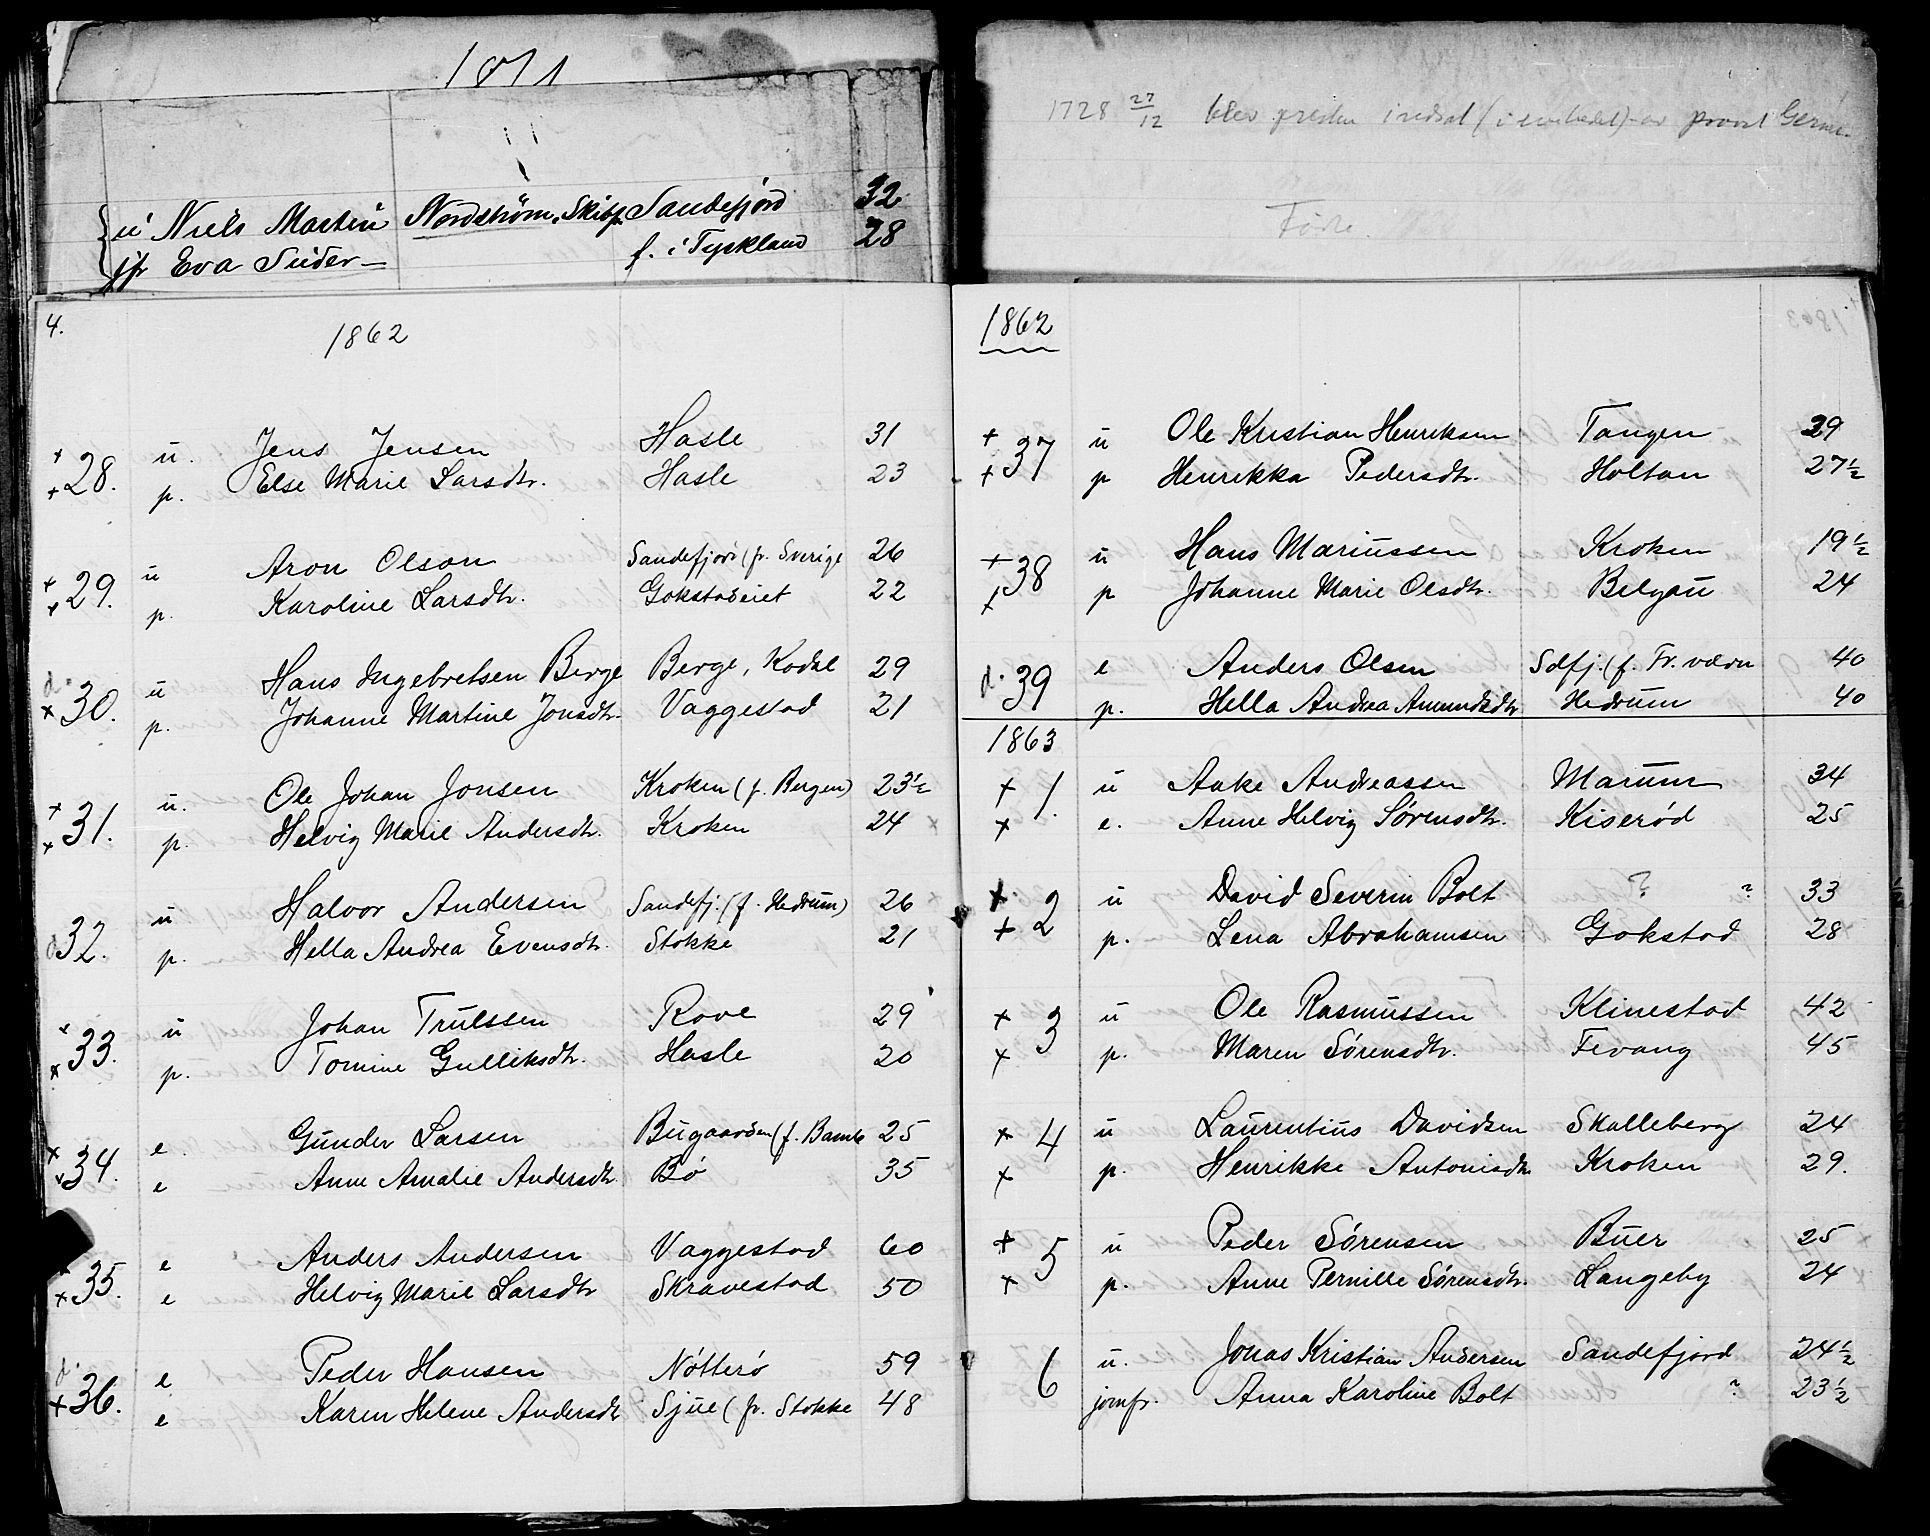 1871
{ u Niels Martin Nordstrøm, Skibsf. Sandefjord 32
jfr Eva Suder — f. i Tyskland 28
4. 1862
28. u. Jens Jensen Hasle 31
p. Else Marie Larsdtr. Hasle 23
29. u Aron Olson Sandefjord (fr. Sverige 26
p. Karoline Larsdtr. Gokstadeiet 22
d. 30. u Hans Ingebretsen Berge Berge, Kodal 29
p. Johanne Martine Jonsdtr. Vaggestad 21
31. u. Ole Johan Jonsen Kroken (f. Bergen) 23½
p. Helvig Marie Andersdtr. Kroken 24
32. u Halvor Andersen Sandefj. (f. Hedrum) 26
p. Hella Andrea Evensdtr. Stokke 21
33. u Johan Trulssen Rove 29
p. Tomine Gulliksdtr. Hasle 20
34. e Gunder Larsen Bugaarden (f. Bamle 25
e Anne Amalie Andersdtr. Bø 35
35. e Anders Andersen Vaggestad 60
e Helvig Marie Larsdtr Skravestad 50
d. 36. e Peder Hansen Nøtterø 59
e Karen Helene Andersdtr Sjue (fr. Stokke 48
1728 27/12 blev presten indsat ( ) av provst
Føste.
1862
37 u Ole Kristian Henriksen Tangen 29
p Henrikka Pedersdtr. Holtan 27½
38 u Hans Mariussen Kroken 19½
p Johanne Marie Olsdtr. Belgau 24
d. 39 e Anders Olsen Sdfj. (f. Fr. værn 40
p. Hella Andrea Amundsdtr Hedrum 40
1863
1. u Aake Andreassen Marum 34
e. Anne Helvig Sørensdtr. Kiserød 25
2 u David Severin Bolt ? ? 33
p. Lena Abrahamsen Gokstad 28
3 u Ole Rasmussen Klinestad 42
p. Maren Sørensdtr. Fevang 45
4 u Laurentius Davidsen Skalleberg 24
p. Henrikke Antonisdtr Kroken 29.
5 u Peder Sørensen Buer 25
p. Anne Pernille Sørensdtr. Langeby 24
6 u. Jonas Kristian Andersen Sandefjord 24½
jomfr. Anna Karoline Bolt ? 23½